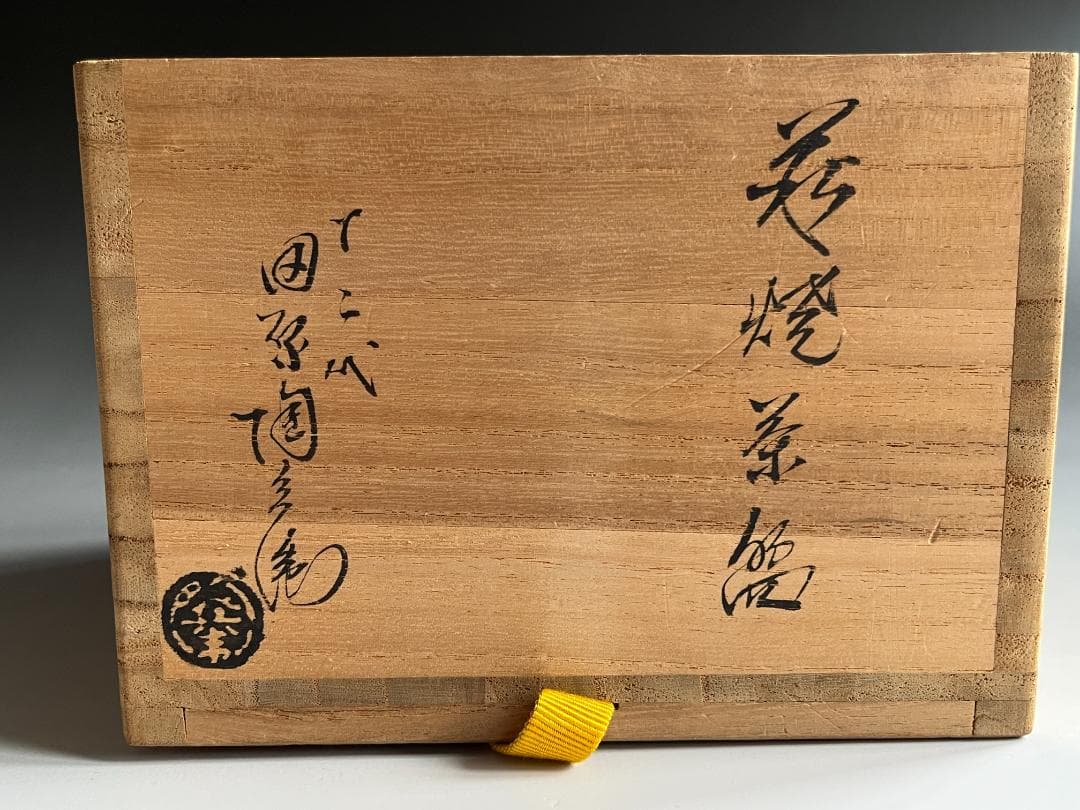 萩焼茶碗
十二代
田原陶兵衛